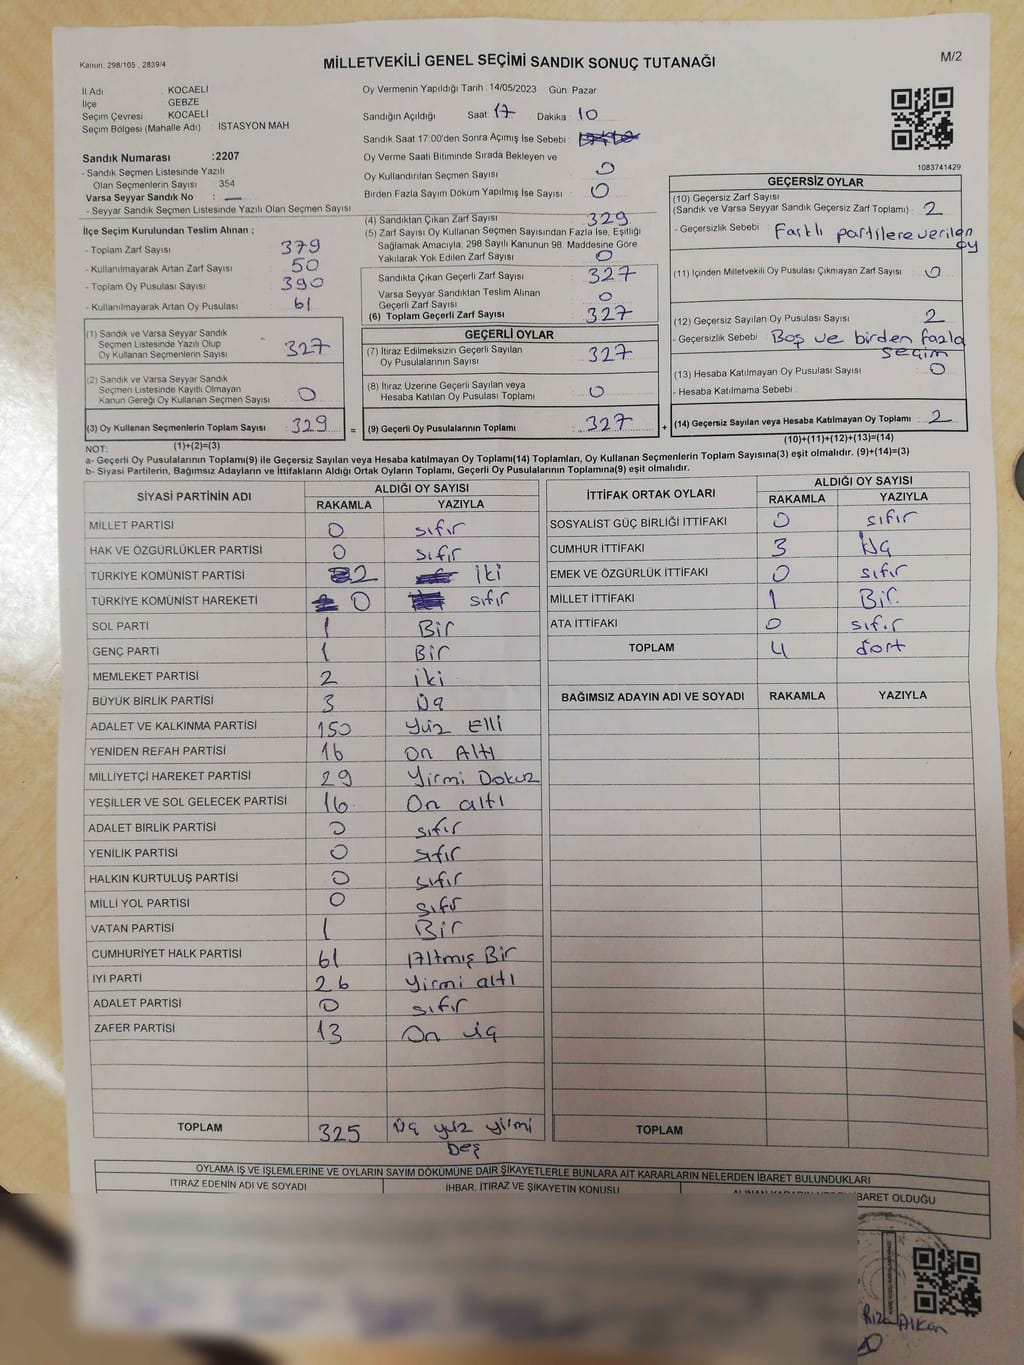 Kanun: 298/105 , 2839/4
MİLLETVEKİLİ GENEL SEÇİMİ SANDIK SONUÇ TUTANAĞI
M/2
İl Adı : KOCAELİ
İlçe : GEBZE
Seçim Çevresi : KOCAELİ
Seçim Bölgesi (Mahalle Adı) : İSTASYON MAH
Sandık Numarası :2207
- Sandık Seçmen Listesinde Yazılı
Olan Seçmenlerin Sayısı : 354
Varsa Seyyar Sandık No : —
- Seyyar Sandık Seçmen Listesinde Yazılı Olan Seçmen Sayısı
İlçe Seçim Kurulundan Teslim Alınan ;
- Toplam Zarf Sayısı : 379
- Kullanılmayarak Artan Zarf Sayısı : 50
- Toplam Oy Pusulası Sayısı : 390
- Kullanılmayarak Artan Oy Pusulası : 61
(1) Sandık ve Varsa Seyyar Sandık
Seçmen Listesinde Yazılı Olup
Oy Kullanan Seçmenlerin Sayısı : 327
(2) Sandık ve Varsa Seyyar Sandık
Seçmen Listesinde Kayıtlı Olmayan
Kanun Gereği Oy Kullanan Seçmen Sayısı : 0
(3) Oy Kullanan Seçmenlerin Toplam Sayısı : 329
(1)+(2)=(3)
Oy Vermenin Yapıldığı Tarih : 14/05/2023 Gün: Pazar
Sandığın Açıldığı Saat : 17 Dakika : 10
Sandık Saat 17:00'den Sonra Açılmış İse Sebebi :
Oy Verme Saati Bitiminde Sırada Bekleyen ve
Oy Kullandırılan Seçmen Sayısı : 0
Birden Fazla Sayım Döküm Yapılmış İse Sayısı : 0
(4) Sandıktan Çıkan Zarf Sayısı : 329
(5) Zarf Sayısı Oy Kullanan Seçmen Sayısından Fazla İse, Eşitliği
Sağlamak Amacıyla, 298 Sayılı Kanunun 98. Maddesine Göre
Yakılarak Yok Edilen Zarf Sayısı : 0
Sandıkta Çıkan Geçerli Zarf Sayısı : 327
Varsa Seyyar Sandıktan Teslim Alınan
Geçerli Zarf Sayısı : 0
(6) Toplam Geçerli Zarf Sayısı : 327
GEÇERLİ OYLAR
(7) İtiraz Edilmeksizin Geçerli Sayılan
Oy Pusulalarının Sayısı : 327
(8) İtiraz Üzerine Geçerli Sayılan veya
Hesaba Katılan Oy Pusulası Toplamı : 0
= (9) Geçerli Oy Pusulalarının Toplamı : 327 +
1083741429
GEÇERSİZ OYLAR
(10) Geçersiz Zarf Sayısı
(Sandık ve Varsa Seyyar Sandık Geçersiz Zarf Toplamı) : 2
- Geçersizlik Sebebi : Farklı partilere verilen
oy
(11) İçinden Milletvekili Oy Pusulası Çıkmayan Zarf Sayısı : 0
(12) Geçersiz Sayılan Oy Pusulası Sayısı : 2
- Geçersizlik Sebebi : Boş ve birden fazla
seçim
(13) Hesaba Katılmayan Oy Pusulası Sayısı : 0
- Hesaba Katılmama Sebebi :
(14) Geçersiz Sayılan veya Hesaba Katılmayan Oy Toplamı : 2
(10)+(11)+(12)+(13)=(14)
NOT:
a- Geçerli Oy Pusulalarının Toplamı(9) ile Geçersiz Sayılan veya Hesaba katılmayan Oy Toplamı(14) Toplamları, Oy Kullanan Seçmenlerin Toplam Sayısına(3) eşit olmalıdır. (9)+(14)=(3)
b- Siyasi Partilerin, Bağımsız Adayların ve İttifakların Aldığı Ortak Oyların Toplamı, Geçerli Oy Pusulalarının Toplamına(9) eşit olmalıdır.
SİYASİ PARTİNİN ADI ALDIĞI OY SAYISI
RAKAMLA YAZIYLA
MİLLET PARTİSİ 0 sıfır
HAK VE ÖZGÜRLÜKLER PARTİSİ 0 sıfır
TÜRKİYE KOMÜNİST PARTİSİ 2 iki
TÜRKİYE KOMÜNİST HAREKETİ 0 sıfır
SOL PARTİ 1 Bir
GENÇ PARTİ 1 Bir
MEMLEKET PARTİSİ 2 iki
BÜYÜK BİRLİK PARTİSİ 3 Üç
ADALET VE KALKINMA PARTİSİ 150 Yüz Elli
YENİDEN REFAH PARTİSİ 16 On Altı
MİLLİYETÇİ HAREKET PARTİSİ 29 Yirmi Dokuz
YEŞİLLER VE SOL GELECEK PARTİSİ 16 On altı
ADALET BİRLİK PARTİSİ 0 sıfır
YENİLİK PARTİSİ 0 sıfır
HALKIN KURTULUŞ PARTİSİ 0 sıfır
MİLLİ YOL PARTİSİ 0 sıfır
VATAN PARTİSİ 1 Bir
CUMHURİYET HALK PARTİSİ 61 Altmış Bir
İYİ PARTİ 26 Yirmi altı
ADALET PARTİSİ 0 sıfır
ZAFER PARTİSİ 13 On üç
TOPLAM 325 Üç yüz yirmi
beş
İTTİFAK ORTAK OYLARI ALDIĞI OY SAYISI
RAKAMLA YAZIYLA
SOSYALİST GÜÇ BİRLİĞİ İTTİFAKI 0 sıfır
CUMHUR İTTİFAKI 3 Üç
EMEK VE ÖZGÜRLÜK İTTİFAKI 0 sıfır
MİLLET İTTİFAKI 1 Bir.
ATA İTTİFAKI 0 sıfır
TOPLAM 4 dört
BAĞIMSIZ ADAYIN ADI VE SOYADI RAKAMLA YAZIYLA
TOPLAM
OYLAMA İŞ VE İŞLEMLERİNE VE OYLARIN SAYIM DÖKÜMÜNE DAİR ŞİKAYETLERLE BUNLARA AİT KARARLARIN NELERDEN İBARET BULUNDUKLARI
İTİRAZ EDENİN ADI VE SOYADI İHBAR, İTİRAZ VE ŞİKAYETİN KONUSU İBARET OLDUĞU
Rıza Alkan